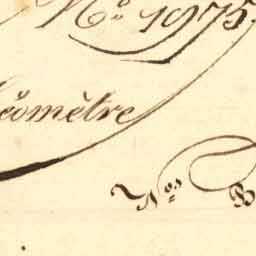 No. 1975.
éomètre
Nos. B